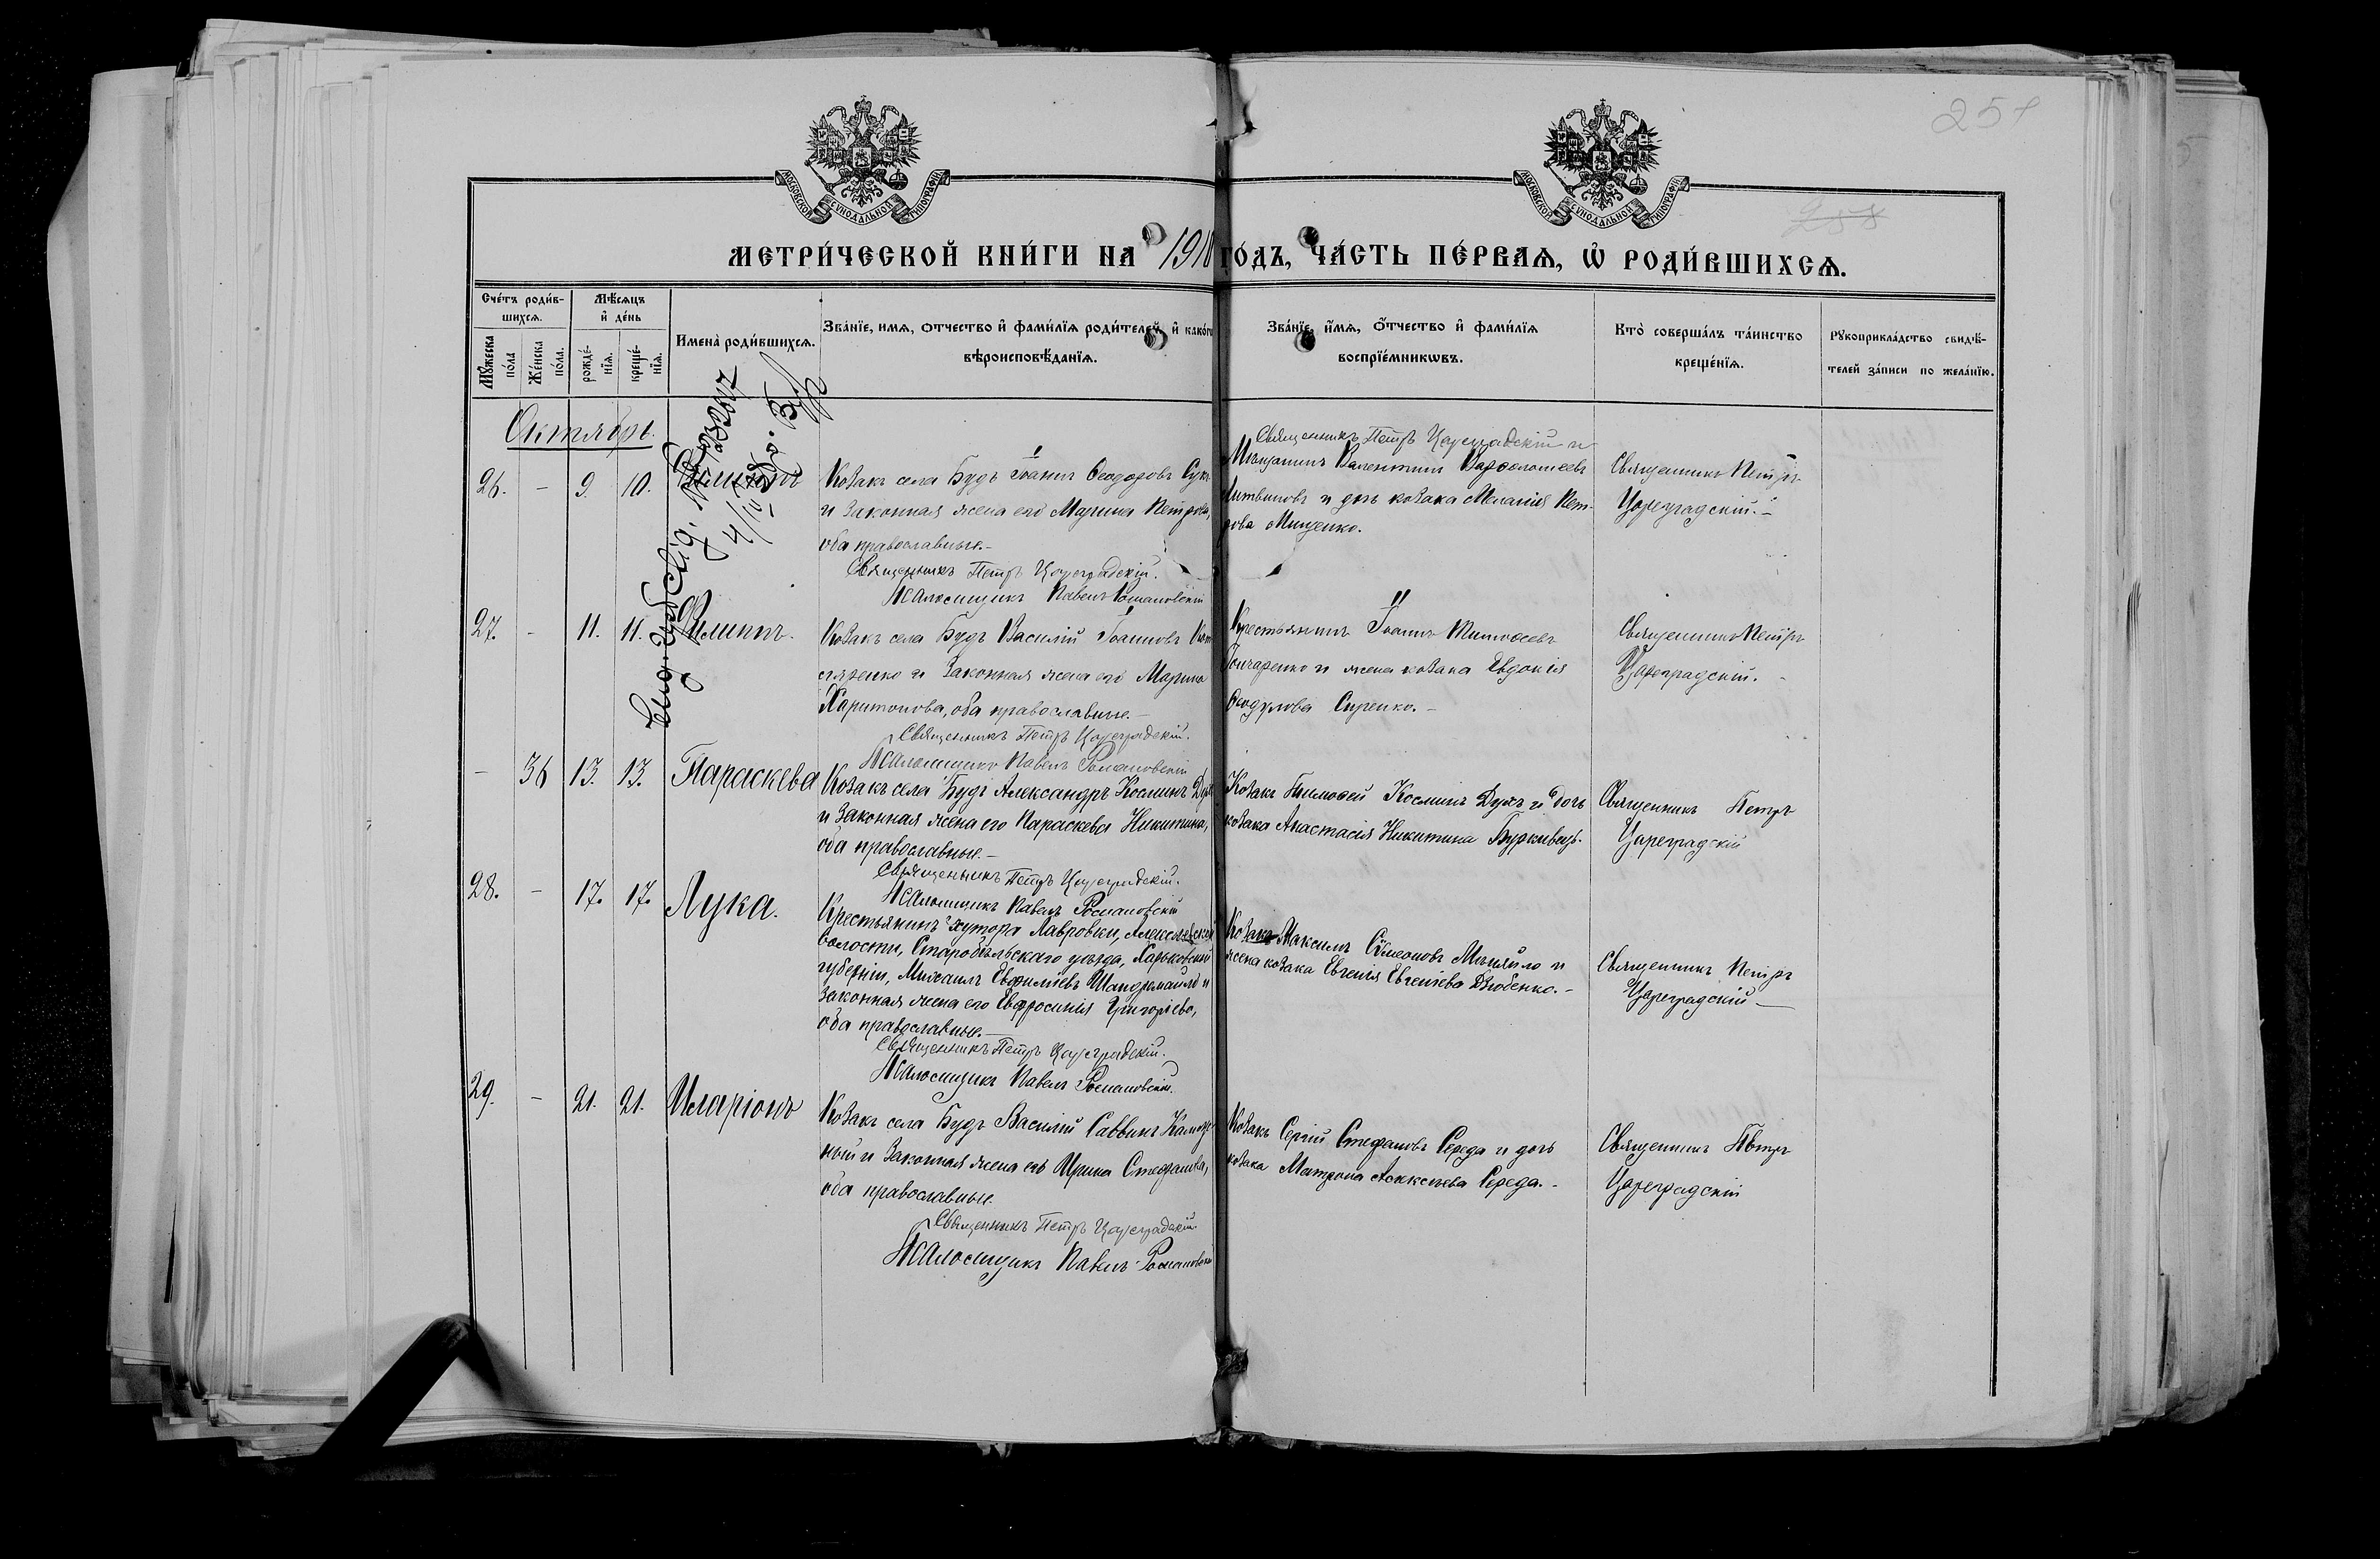 251
258
МОСКОВСКОЙ СѴНОДАЛЬНОЙ ТИПОГРАФІИ
МОСКОВСКОЙ СѴНОДАЛЬНОЙ ТИПОГРАФІИ
МЕТРИ́ЧЕСКОЙ КНИ́ГИ НА 1910 ГО́ДЪ, ЧА́СТЬ ПЕ́РВАѦ, Ѡ҆ РОДИ́ВШИХСѦ.
Сче́тъ роди́в-
шихсѧ.
Мꙋ́жеска по́ла
Же́нска по́ла.
Мѣ́сѧцъ
и҆ де́нь
рожде́-
нїѧ.
креще́-
нїѧ.
Имена̀ роди́вшихсѧ.
Зва́нїе, имѧ, отчество и҆ фами́лїѧ роди́телей, и҆ како́гѡ
вѣроисповѣ́данїѧ.
Зва́нїе, и҆́мѧ, о҆́тчество и҆ фами́лїѧ
воспрїе́мникѡвъ.
Кто̀ соверша́лъ та́инство
креще́нїѧ.
Рꙋкоприкла́дство свидѣ́-
телей за́писи по жела́нїю.
Октябрь.
26. - 9. 10. Филиппъ
Козакъ села Будъ Іоаннъ Ѳеодоровъ
и законная жена его Марина Петрова,
оба православные.-
Священникъ Петръ Цареградскій.
Псаломщикъ Павелъ Романовскій
Священникъ Петръ Цареградскій и
Мѣщанинъ Валентинъ Варѳоломеевъ
Литвиновъ и дочь козака Меланія Пет-
рова Мищенко.
Священникъ Петръ
Цареградскій.-
27. - 11. 11. Филиппъ.
Козакъ села Будъ Василій Іоанновъ
стяренко и законная жена его Марина
Харитонова, оба православные.-
Священникъ Петръ Цареградскій.
Псаломщикъ Павелъ Романовскій
Крестьянинъ Іоаннъ Тимоѳеевъ
Гончаренко и жена козака Евдокія
Ѳеодулова Сиренко.-
Священникъ Петръ
Цареградскій.-
- 36 13. 13. Параскева
Козакъ села Будъ Александръ Косминъ
и законная жена его Параскева Никитина,
оба православные.-
Священникъ Петръ Цареградскій.
Псаломщикъ Павелъ Романовскій
Козакъ Тимоѳей Косминъ и дочь
козака Анастасія Никитина Бурківецъ.
Священникъ Петръ
Цареградскій
28. - 17. 17. Лука.
Крестьянинъ хутора Лавровки, Алексѣевской
волости, Старобѣльскаго уѣзда, Харьковской
губерніи, Михаилъ Евфиміевъ и
законная жена его Евфросинія Григоріева,
оба православные.-
Священникъ Петръ Цареградскій.
Псаломщикъ Павелъ Романовскій.
Козакъ Максимъ Сѵмеоновъ и
жена козака Евгенія Евгеніева Дзюбенко.-
Священникъ Петръ
Цареградскій-
29. - 21. 21. Иларіонъ
Козакъ села Будъ Василій Саввинъ
и законная жена его Ирина Стефанова,
оба православные.
Священникъ Петръ Цареградскій.
Псаломщикъ Павелъ Романовскій
Козакъ Сергій Стефановъ Середа и дочь
козака Матрона Алексѣева Середа.-
Священникъ Петръ
Цареградскій